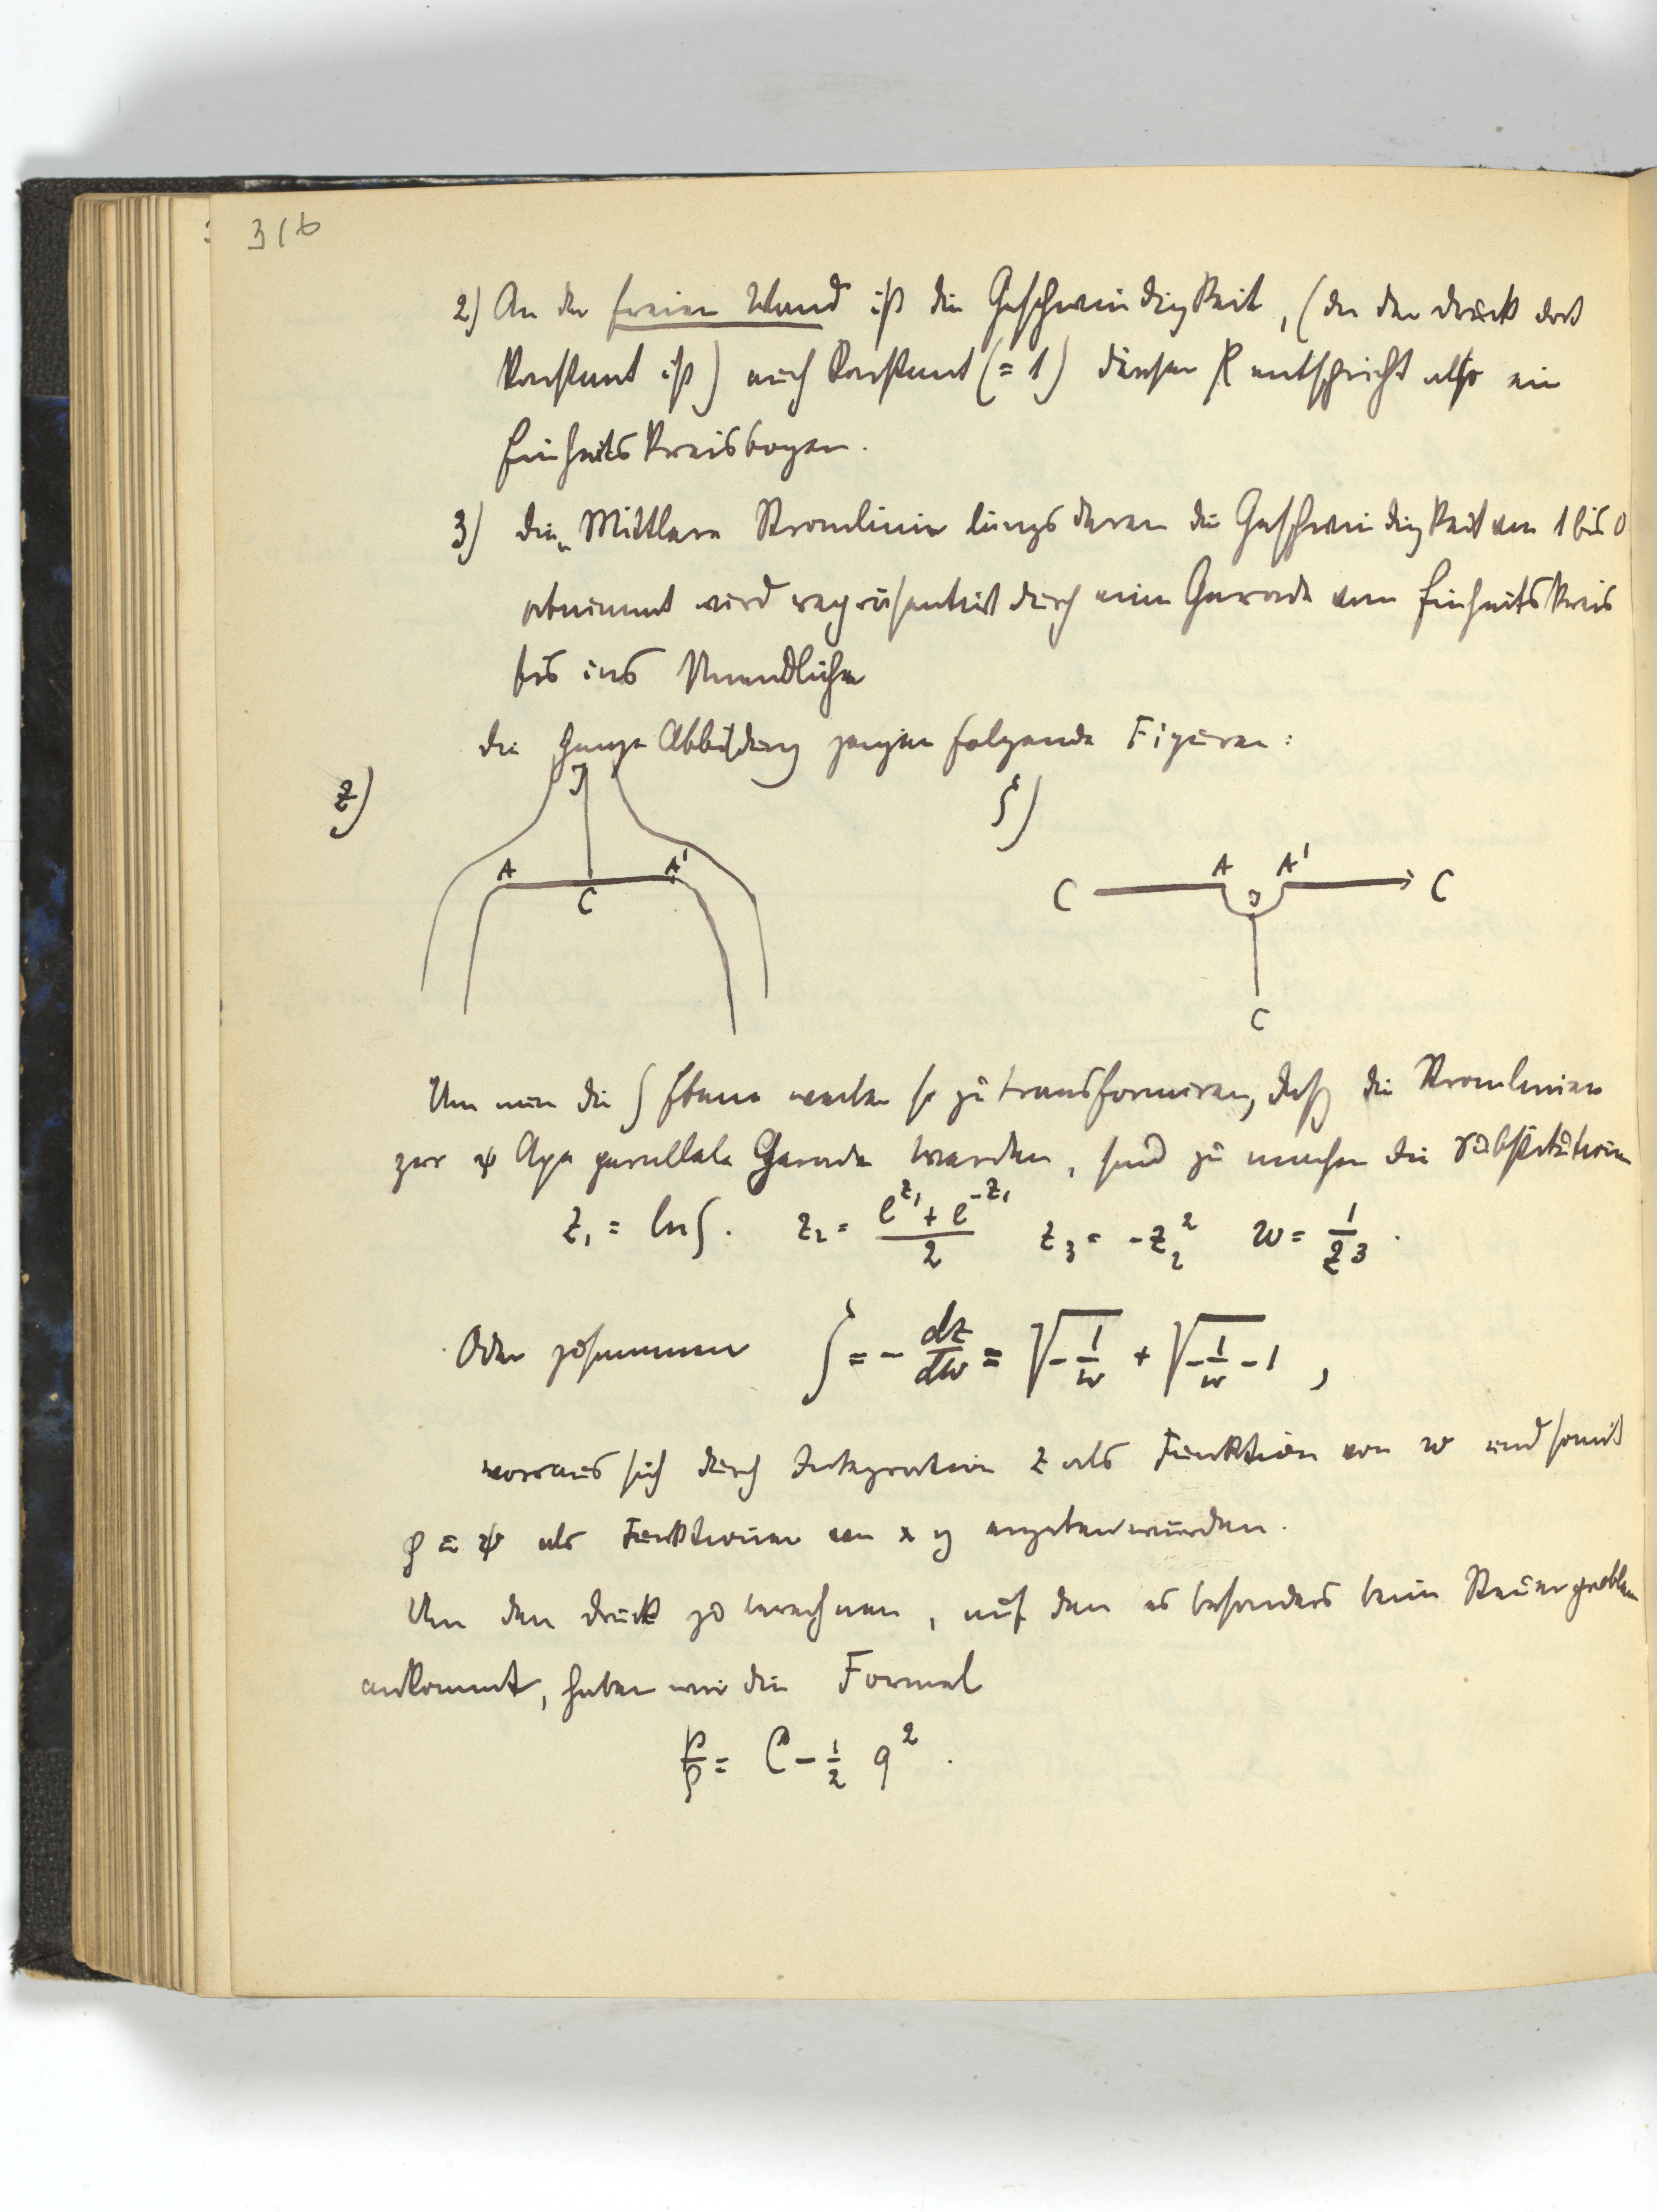 316
2) An der freien Wand ist die Geschwindigkeit, (da der Druck dort
konstant ist) auch konstant (= 1) diesen entspricht also ein
Einheitskreisbogen.
3) Die Mittlere Stromlinie längs deren die Geschwindigkeit von 1 bis 0
abnimmt wird repräsentirt durch eine Gerade vom Einheitskreis
bis ins Unendliche
Die ganze Abbildung zeigen folgende Figuren:
z) ζ)
J
A C A'
C A J A' C
C
Um nun die ζ Ebene weiter so zu transformiren, daß die Stromlinien
zur ψ Axe parallele Gerade werden, sind zu machen die Substitution
z₁ = ln ζ. z₂ = (e^{z₁} + e^{-z₁})/2 z₃ = -z₂² w = 1/z₃.
Oder zusammen ζ = - dz/dw = √(-1/w) + √(-1/w - 1) ,
woraus sich durch Integration z als Funktion von w und somit
φ u ψ als Funktionen von x y ergeben würden.
Um den Druck zu berechnen, auf den es besonders beim Steuerproblem
ankommt, haben wir die Formel
p/ρ = C - 1/2 q² .